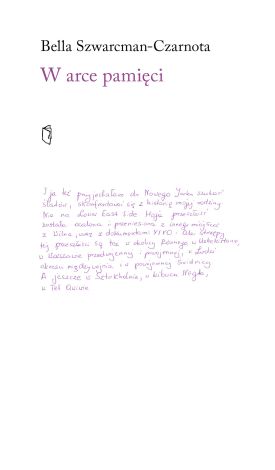 Bella Szwarcman-Czarnota
W arce pamięci
I ja też przyjechałam do Nowego Jorku szukać
śladów, skonfrontować się z historią mojej rodziny.
Nie na Lower East Side. Moja przeszłość
została ocalona i przeniesiona z innego miejsca:
z Wilna, wraz z dokumentami YIVO. Ale strzępy
tej przeszłości są też w okolicy Równego w
w Warszawie przedwojennej i powojennej, w Łodzi
okresu międzywojnia i w powojennej Świdnicy.
A jeszcze w Sztokholmie, w kibucu Magda,
w Tel Awiwie